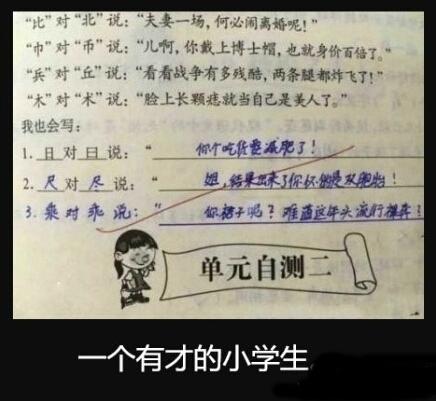 “比”对“北”说：“夫妻一场，何必闹离婚呢！”
“巾”对“币”说：“儿啊，你戴上博士帽，也就身价百倍了。”
“兵”对“丘”说：“看看战争有多残酷，两条腿都炸飞了！”
“木”对“术”说：“脸上长颗痣就当自己是美人了。”
我也会写：
1. 日 对 曰 说：“你个吃货要减肥了！
2. 尺 对 尽 说：“姐，结果出来了你怀的是双胞胎！
3. 乘 对 乖 说：“你裤子呢？难道这年头流行裸奔？
单元自测二
一个有才的小学生